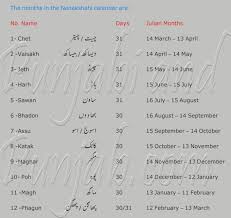 The months in the Nanakshahi calendar are:
No. Name Days Julian Months
1- Chet 31 14 March – 13 April
2- Vaisakh 31 14 April – 14 May
3- Jeth جیٹھ 31 15 May – 14 June
4- Harh 31 15 June – 15 July
5- Sawan ساون 31 16 July – 15 August
6- Bhadon بھادوں 30 16 August – 14 September
7- Assu 30 15 September – 14 October
8- Katak 30 15 October – 13 November
9- Maghar مگھر 30 14 November – 13 December
10- Poh پوہ 30 14 December – 12 January
11 -Magh ماگھ 30 13 January – 11 February
12- Phagun 30/31 12 February – 13 March